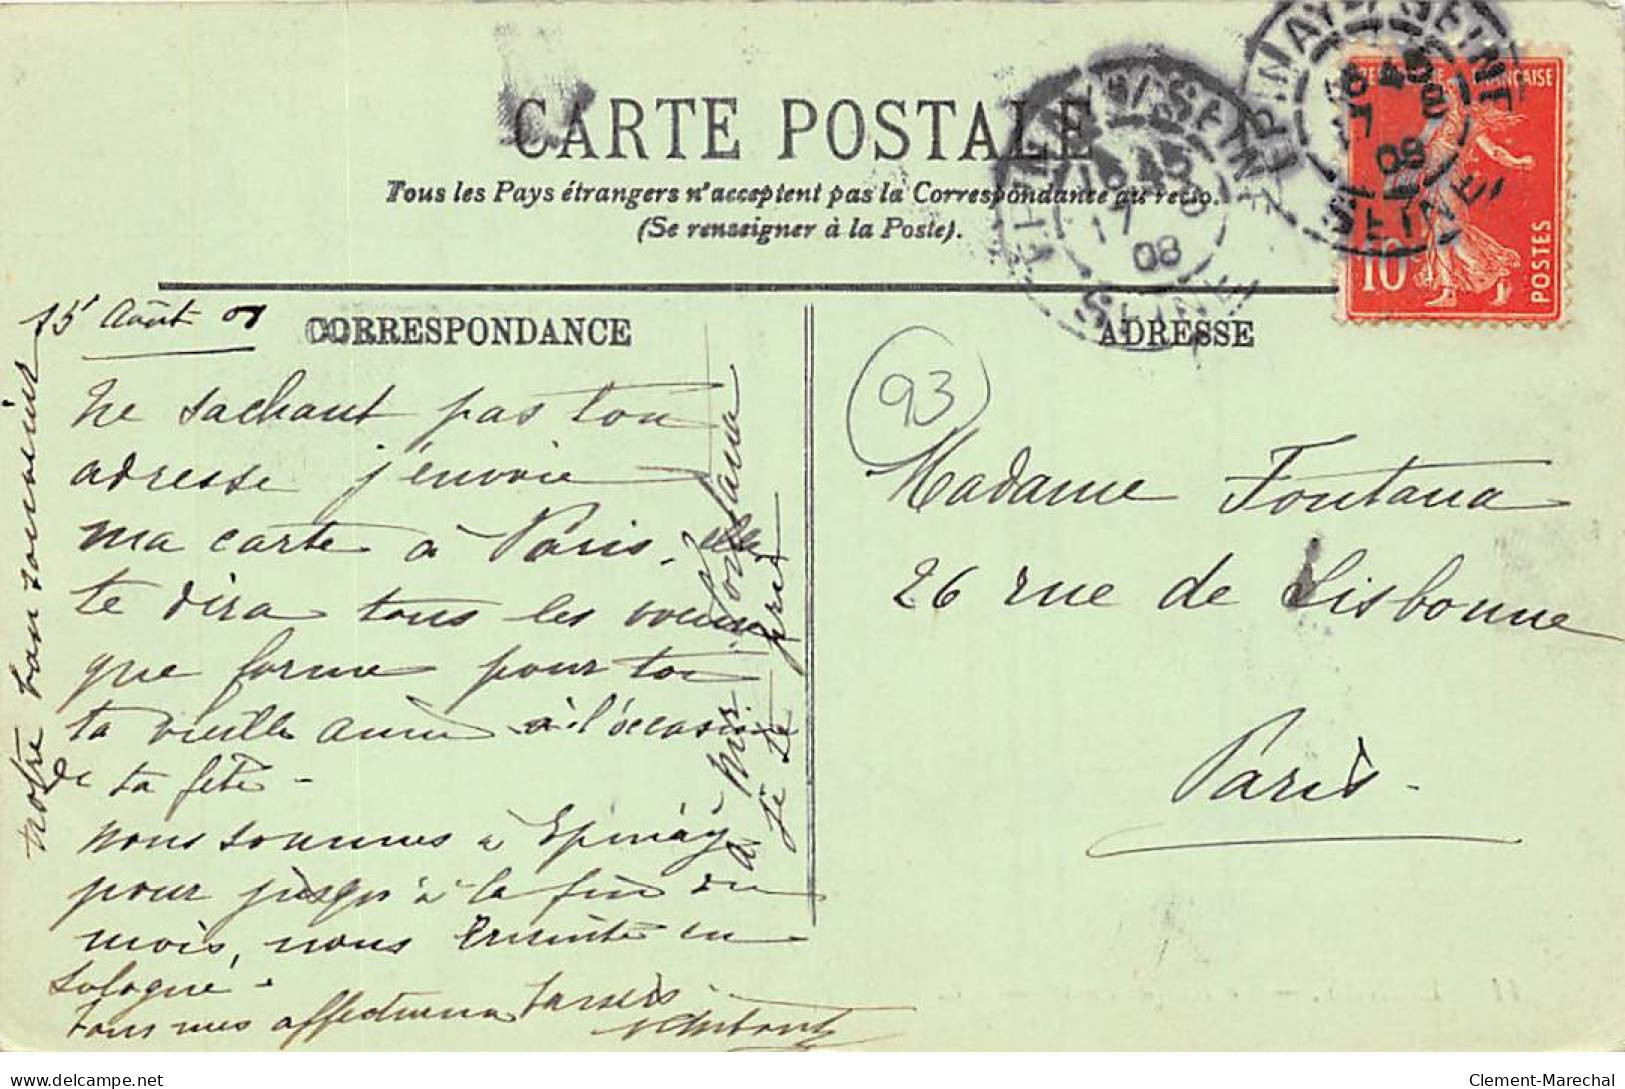 CARTE POSTALE
Tous les Pays étrangers n'acceptent pas la Correspondance au recto.
(Se renseigner à la Poste).
EPINAY S/ SEINE
17 8
08
SEINE
EPINAY S/ SEINE
08
SEINE
REPUBLIQUE FRANÇAISE
10
POSTES
CORRESPONDANCE
ADRESSE
15 Août
Ne sachant pas ton
adresse j'envoie
ma carte à Paris. elle
te dira tous les voeux
que forme pour toi
ta vieille amie à l'occasion
de ta fête -
nous sommes à Epinay
pour jusqu'à la fin du
mois, nous ensuite en
Sologne.
tous mes affectueux baisers
notre bon souvenir
à Mr Fontana
je te prie
93
Madame Fontana
26 rue de Lisbonne
Paris.
delcampe.net
Clement-Marechal